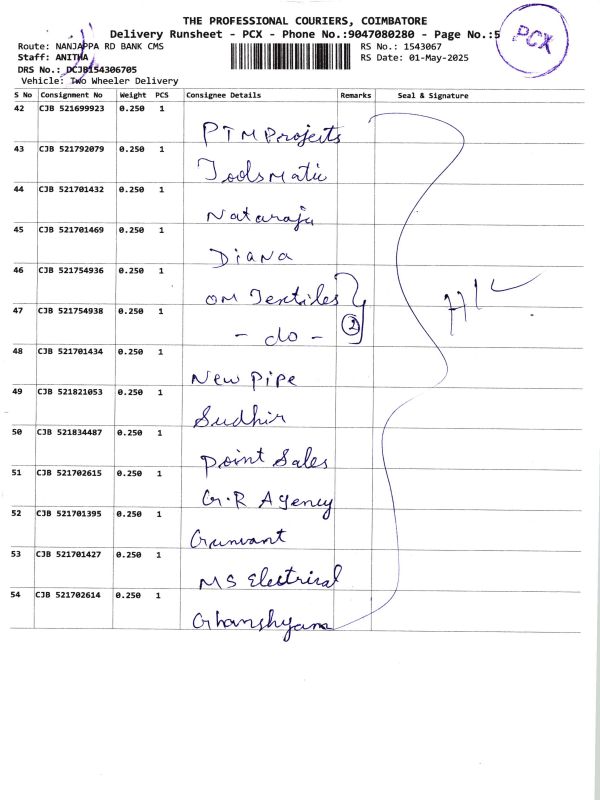 THE PROFESSIONAL COURIERS, COIMBATORE
Delivery Runsheet - PCX - Phone No.:9047080280 - Page No.:5
PCX
Route: NANJAPPA RD BANK CMS
RS No.: 1543067
Staff: ANITHA
RS Date: 01-May-2025
DRS No.: DCJB154306705
Vehicle: Two Wheeler Delivery
S No Consignment No Weight PCS Consignee Details Remarks Seal & Signature
42 CJB 521699923 0.250 1
PTM Projects
43 CJB 521792079 0.250 1
Toolsmatic
44 CJB 521701432 0.250 1
Nataraja
45 CJB 521701469 0.250 1
Diana
46 CJB 521754936 0.250 1
OM Textiles
47 CJB 521754938 0.250 1
- do - 2
48 CJB 521701434 0.250 1
New Pipe
49 CJB 521821053 0.250 1
Sudhir
50 CJB 521834487 0.250 1
Point Sales
51 CJB 521702615 0.250 1
G.R Agency
52 CJB 521701395 0.250 1
Gunvant
53 CJB 521701427 0.250 1
MS Electrical
54 CJB 521702614 0.250 1
Ghanshyam